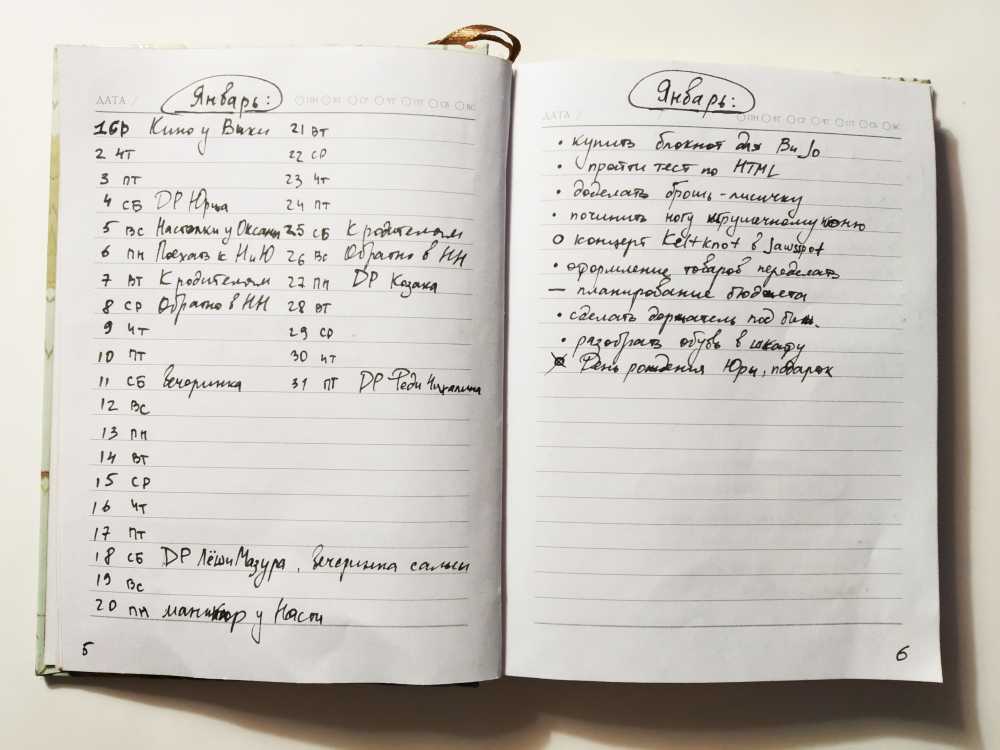 ДАТА /
Январь:
ПН ВТ СР ЧТ ПТ СБ ВС
1 СР Кино у Вики
2 ЧТ
3 ПТ
4 СБ ДР Юрца
5 ВС Настолки у Оксаны
6 ПН Поехать к НиЮ
7 ВТ К родителям
8 СР Обратно в НН
9 ЧТ
10 ПТ
11 СБ Вечеринка
12 ВС
13 ПН
14 ВТ
15 СР
16 ЧТ
17 ПТ
18 СБ ДР Лёши Мазура, вечеринка сальсы
19 ВС
20 ПН маникюр у Насти
21 ВТ
22 СР
23 ЧТ
24 ПТ
25 СБ К родителям
26 ВС Обратно в НН
27 ПН ДР Козака
28 ВТ
29 СР
30 ЧТ
31 ПТ ДР Феди
5
ДАТА /
Январь:
ПН ВТ СР ЧТ ПТ СБ ВС
• купить блокнот для BuJo
• пройти тест по HTML
• доделать брошь-лисичку
• починить ногу игрушечному коню
o концерт Keltknot в Jawspot
• оформление товаров переделать
— планирование бюджета
• сделать держатель под биж.
• разобрать обувь в шкафу
День рождения Юры, подарок
6